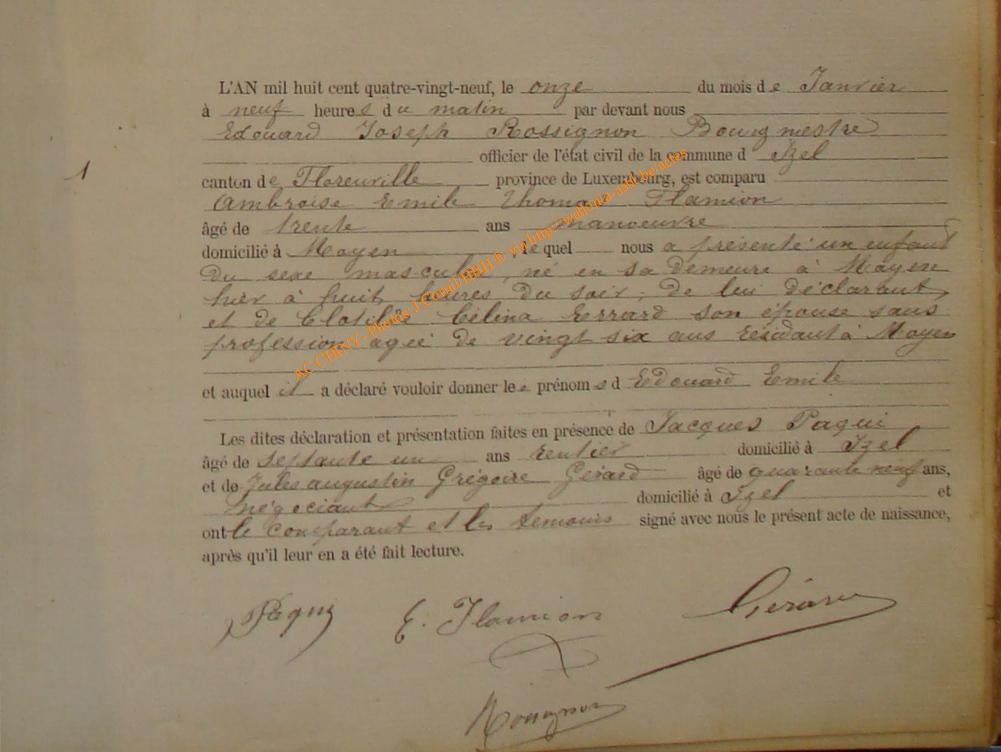 L'AN mil huit cent quatre-vingt-neuf, le onze du mois de Janvier
à neuf heures du matin par devant nous
Edouard Joseph Rossignon Bourgmestre
officier de l'état civil de la commune d Izel
1
canton de Florenville province de Luxembourg, est comparu
Ambroise Emile Thomas Flamion
âgé de trente ans manoeuvre
domicilié à Moyen, le quel nous a présenté un enfant
du sexe masculin, né en sa demeure à Moyen
hier à huit heures du soir, de lui déclarant
et de Clotilde Célina Perrard son épouse sans
profession agée de vingt six ans résidant à Moyen
et auquel il a déclaré vouloir donner les prénoms d Edouard Emile
Les dites déclaration et présentation faites en présence de Jacques Paqui
âgé de septante un ans rentier domicilié à Izel
et de Jules augustin Grégoire Gérard âgé de quarante neuf ans,
négociant domicilié à Izel et
ont le comparant et les temoins signé avec nous le présent acte de naissance,
après qu'il leur en a été fait lecture.
Paqui E. Flamion Gérard
Rossignon